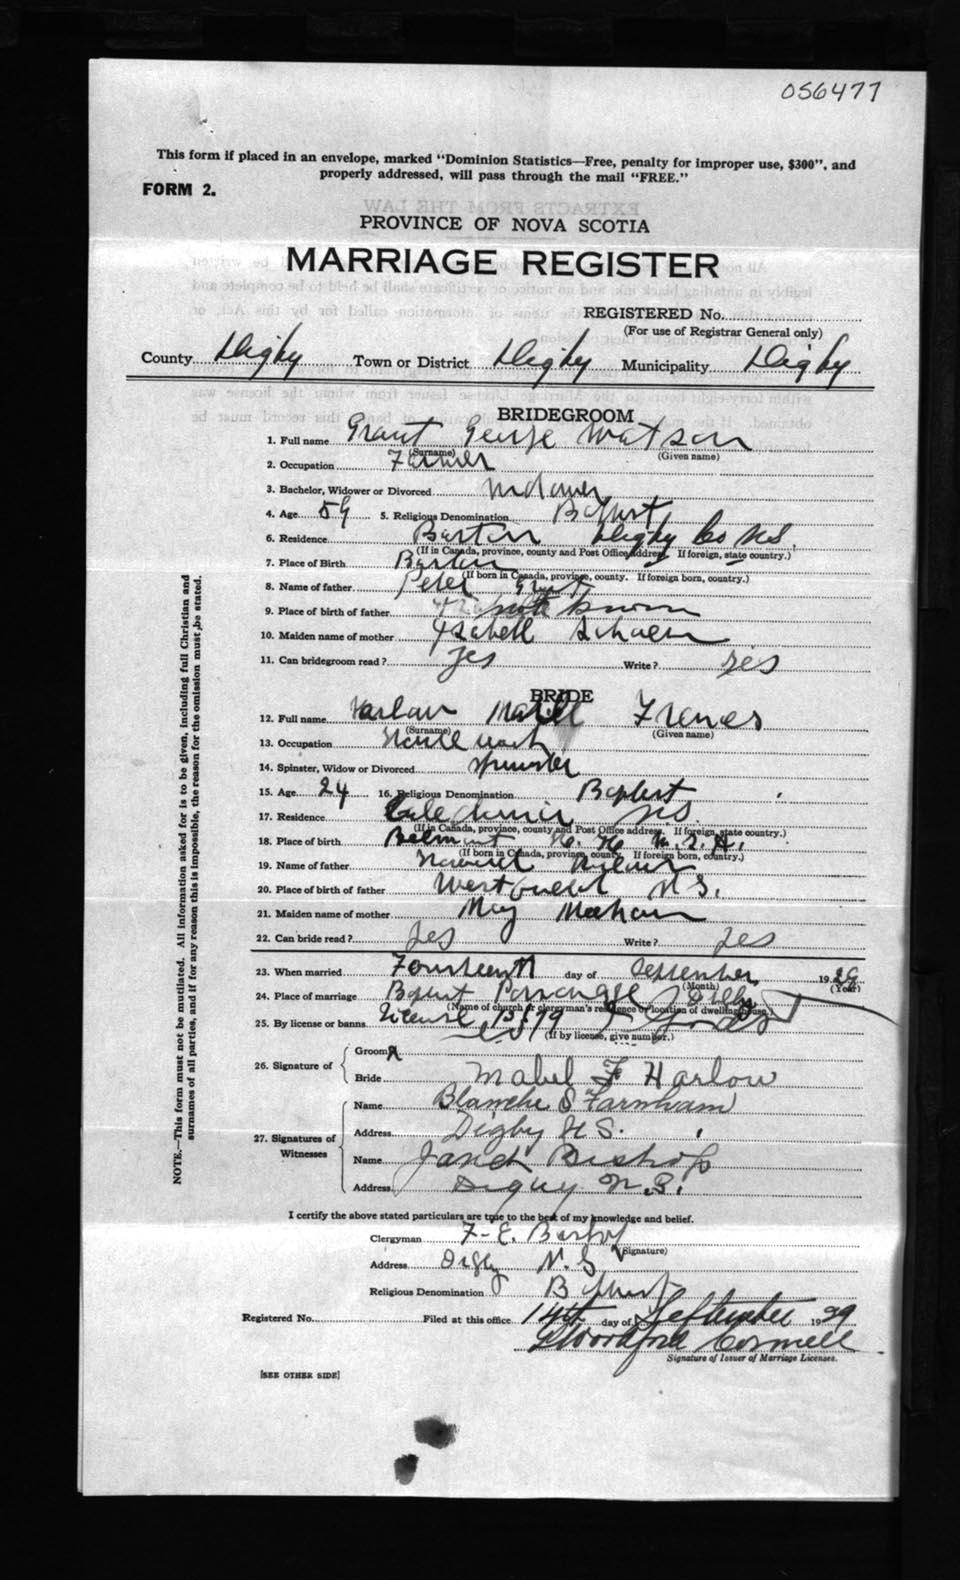 056477
This form if placed in an envelope, marked "Dominion Statistics—Free, penalty for improper use, $300", and
properly addressed, will pass through the mail "FREE."
FORM 2.
PROVINCE OF NOVA SCOTIA
MARRIAGE REGISTER
REGISTERED No.
(For use of Registrar General only)
County Digby Town or District Digby Municipality Digby
BRIDEGROOM
1. Full name Grant George Watson
(Surname) (Given name)
2. Occupation Farmer
3. Bachelor, Widower or Divorced Widower
4. Age 59 5. Religious Denomination Baptist
6. Residence Barton Digby Co N.S.
(If in Canada, province, county and Post Office address. If foreign, state country.)
7. Place of Birth Barton
(If born in Canada, province, county. If foreign born, country.)
8. Name of father Peter Grant
9. Place of birth of father not known
10. Maiden name of mother Isabell
11. Can bridegroom read? Yes Write? Yes
BRIDE
12. Full name Harlow Mabel
(Surname) (Given name)
13. Occupation House work
14. Spinster, Widow or Divorced Spinster
15. Age 24 16. Religious Denomination Baptist
17. Residence Caledonia N.S.
(If in Canada, province, county and Post Office address. If foreign, state country.)
18. Place of birth Belmont
(If born in Canada, province, county. If foreign born, country.)
19. Name of father
20. Place of birth of father Westfield N.S.
21. Maiden name of mother May
22. Can bride read? Yes Write? Yes
23. When married Fourteenth day of September 1929
(Month) (Year)
24. Place of marriage Baptist Parsonage Digby
(Name of church or clergyman's residence or location of dwelling house.)
25. By license or banns License
(If by license, give number.)
26. Signature of
Groom
Bride Mabel F Harlow
27. Signatures of Witnesses
Name Blanche S Farnham
Address Digby N.S.
Name Janet Bishop
Address Digby N.S.
I certify the above stated particulars are true to the best of my knowledge and belief.
Clergyman F. E. Bishop
(Signature)
Address Digby N.S
Religious Denomination Baptist
Registered No. Filed at this office 14th day of September 1929
Cornwell
Signature of Issuer of Marriage Licenses.
[SEE OTHER SIDE]
NOTE.—This form must not be mutilated. All information asked for is to be given, including full Christian and
surnames of all parties, and if for any reason this is impossible, the reason for the omission must be stated.